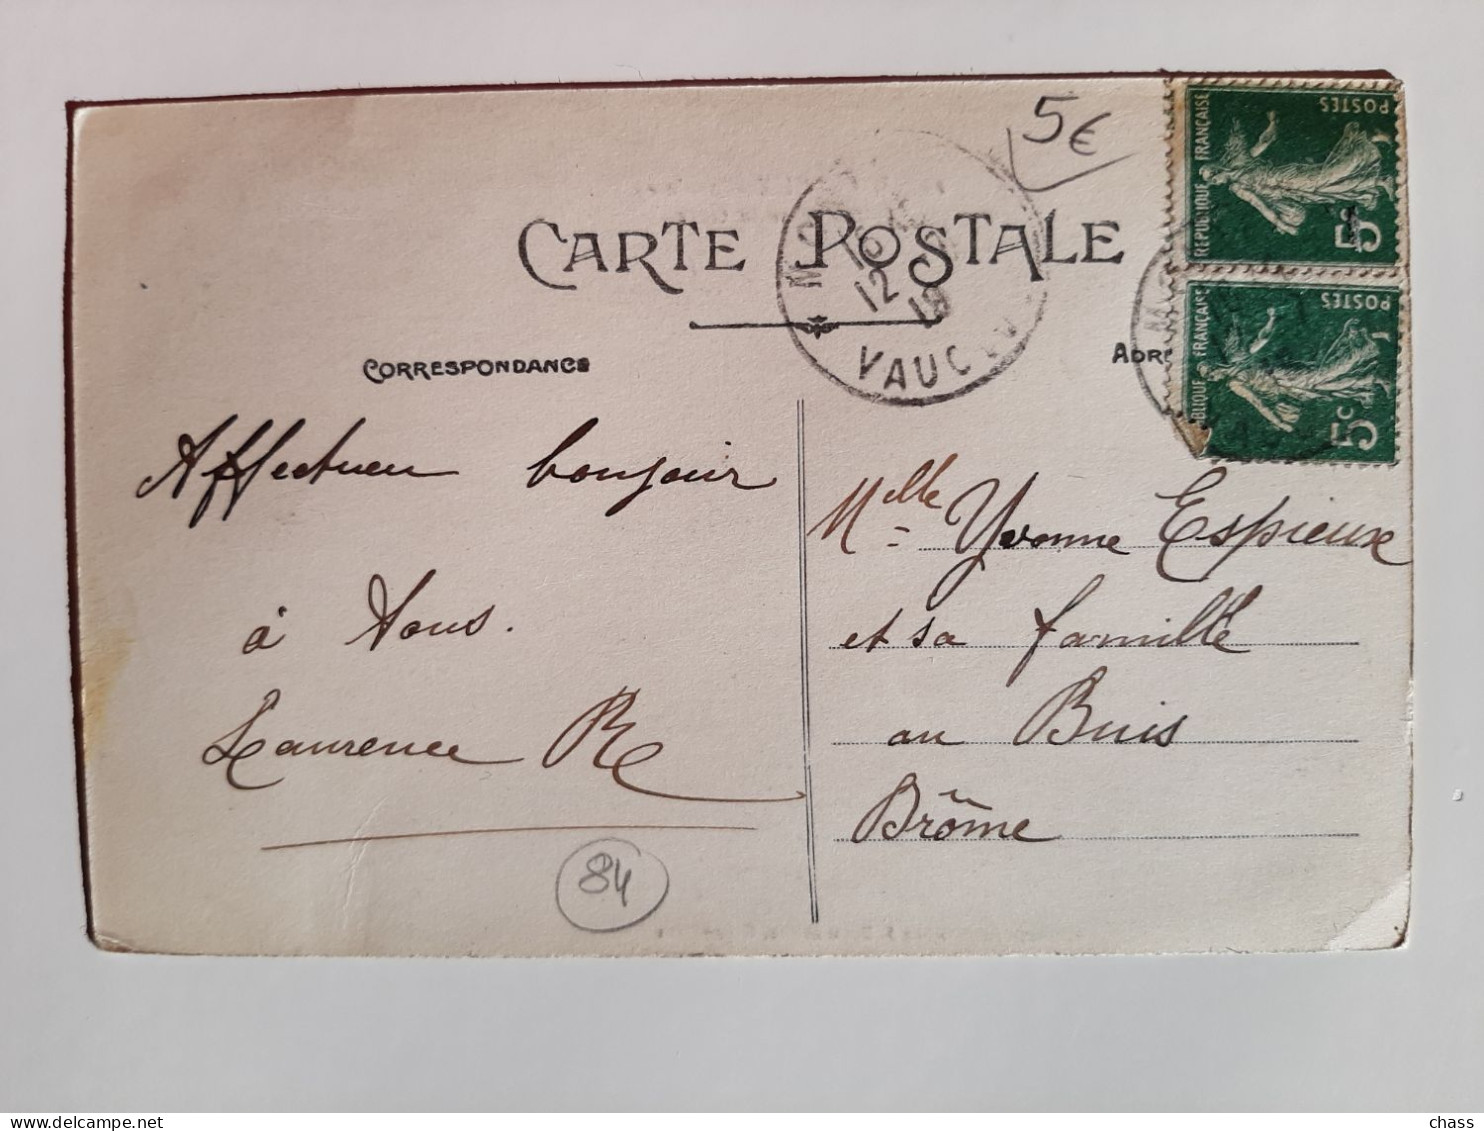 5€
CARTE POSTALE
CORRESPONDANCE
ADR
RÉPUBLIQUE FRANÇAISE
POSTES
5c
BLIQUE FRANÇAISE
POSTES
5c
12
VAUC
Affectueux bonjour
à tous.
Laurence R
Melle Yvonne Espieux
et sa famille
au Buis
Drôme
84
chass